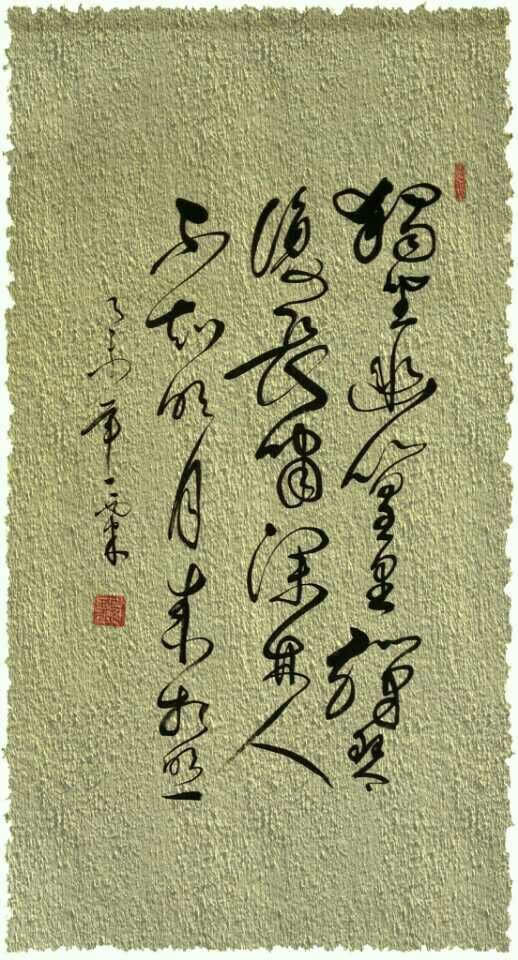 獨坐幽篁里彈琴
復長嘯深林人
不知明月來相照